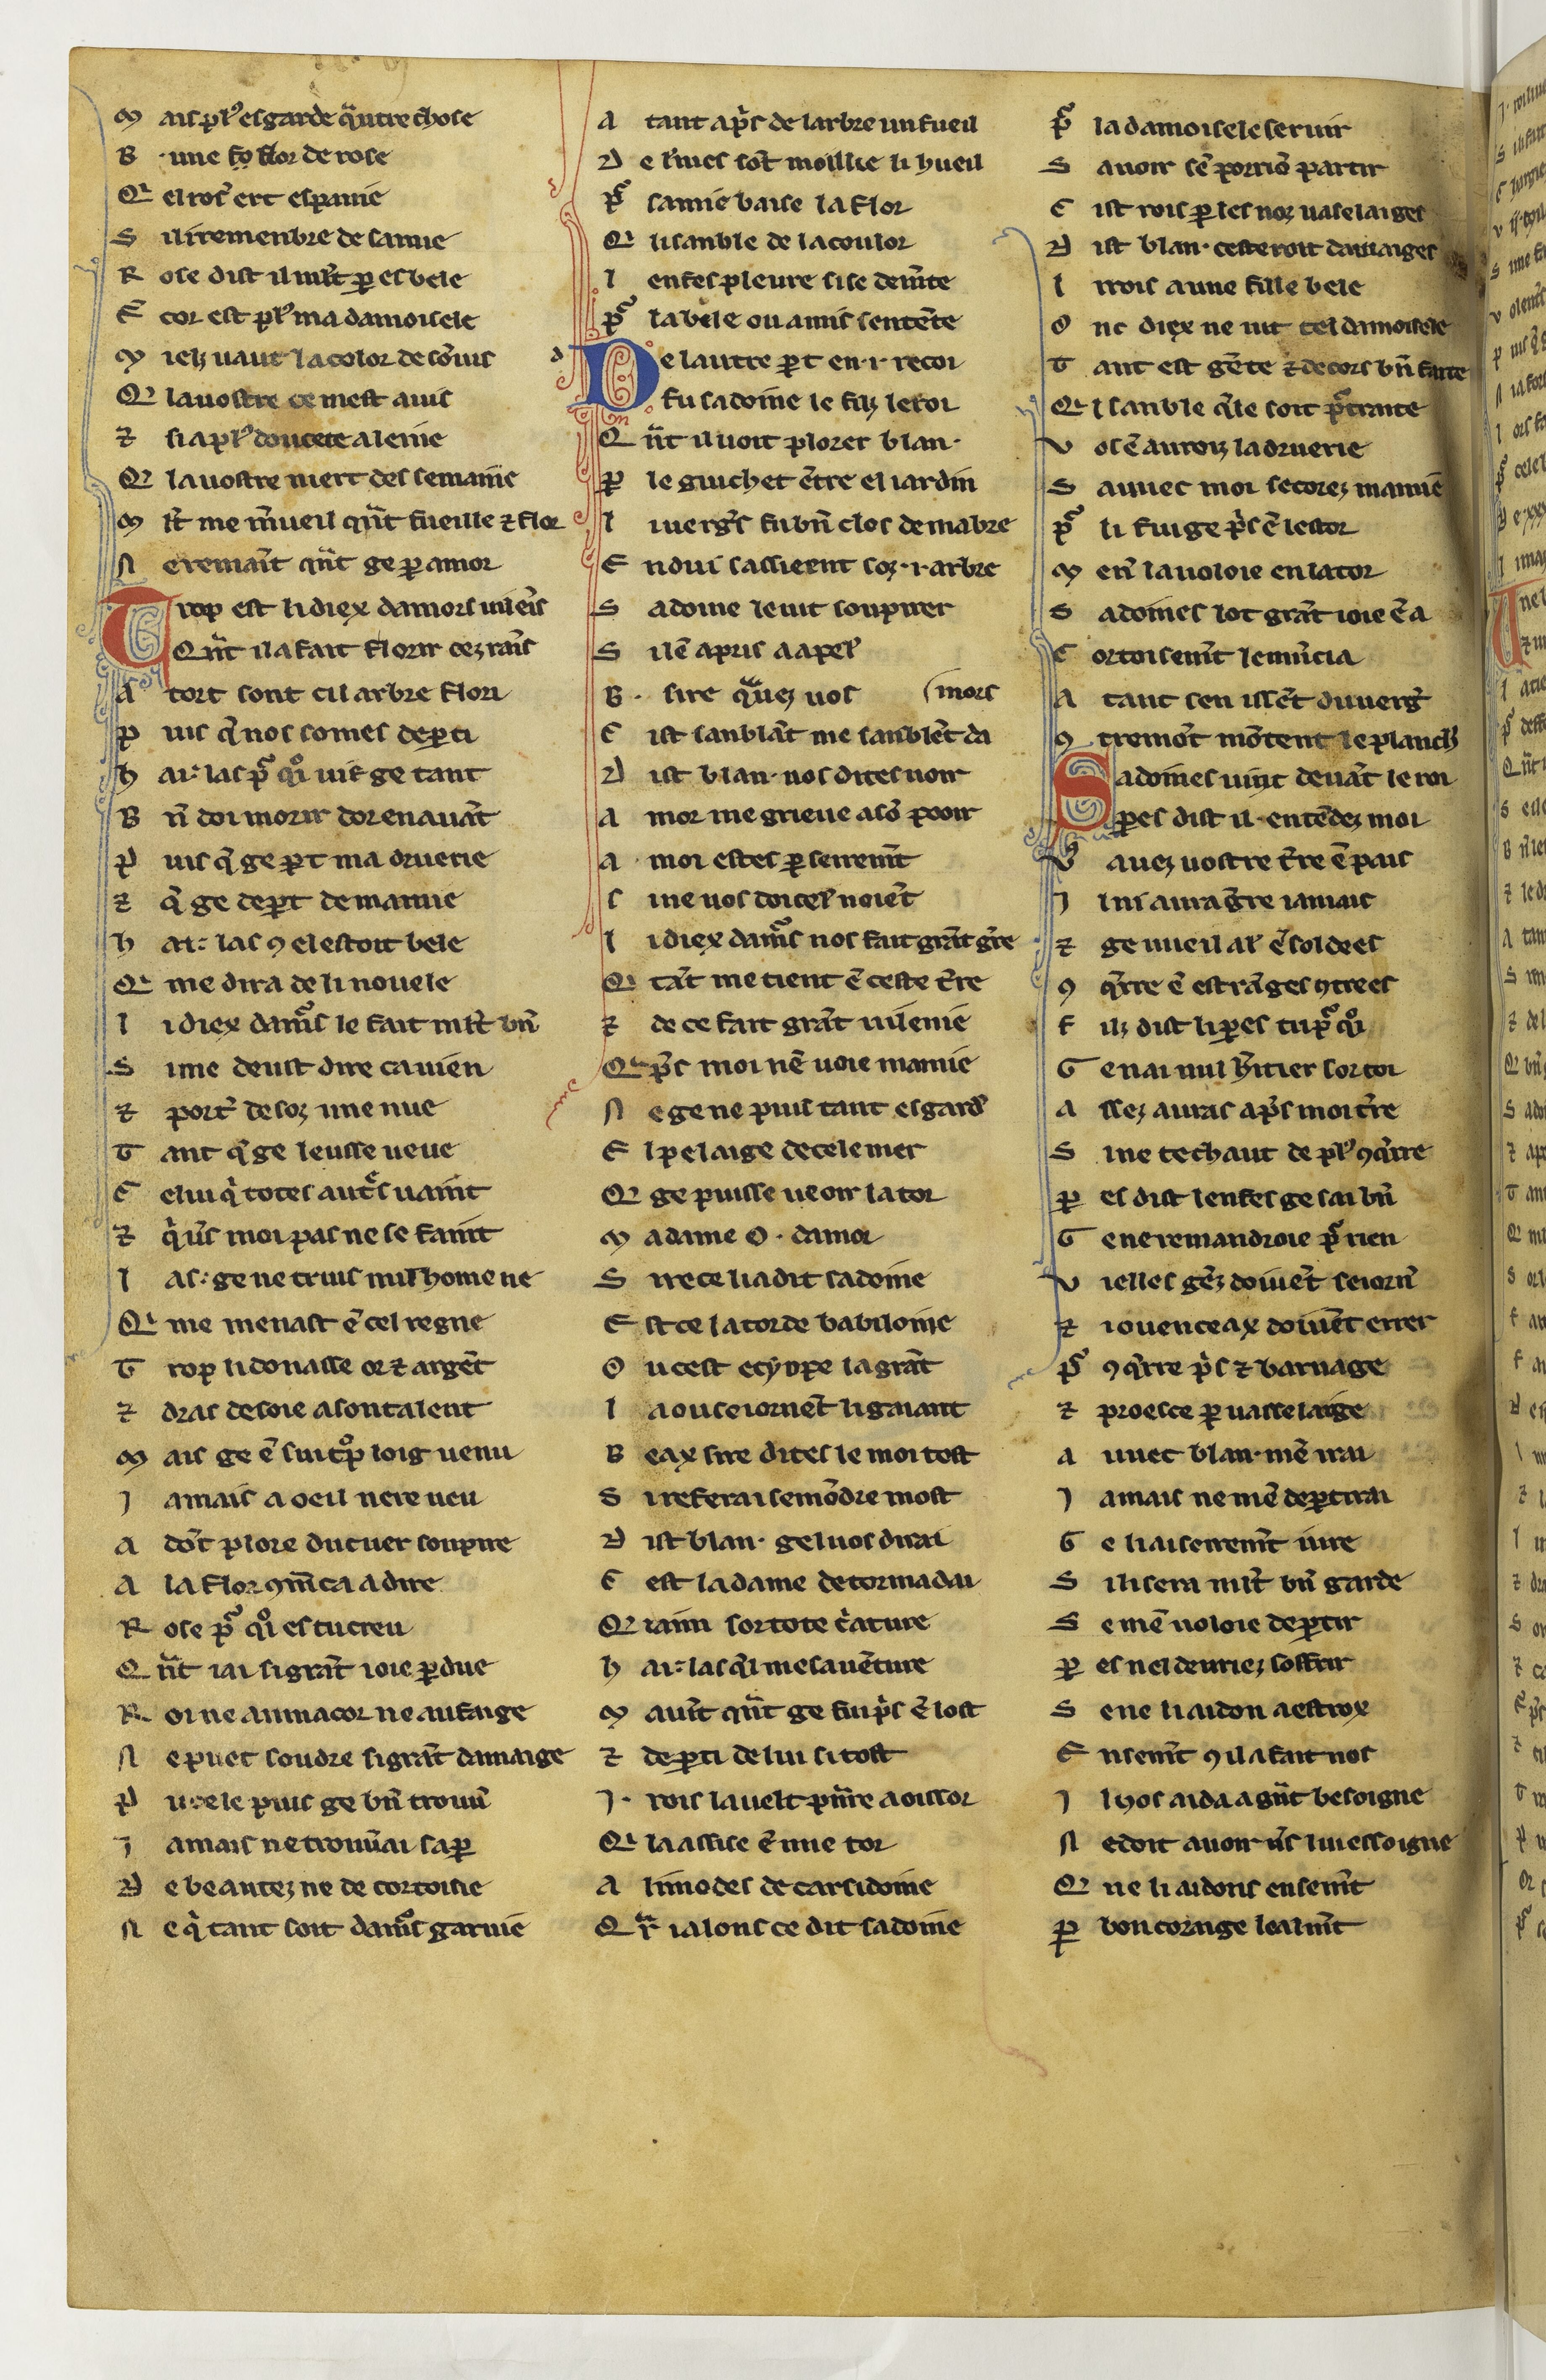 M ais plꝰ esgarde q̃utre chose
B · une so flor de rose
Q' el ros̃ ert espanie
S ili remenbre de samie
R ose dist il ml̃t ꝑ es bele
Ẽ cor est plꝰ ma damoisele
M ielz uaut la color de sõ uis
Q' la uostre ce mest auis
⁊ si a plꝰ doucete aleine
Q' la uostre niert des semaine
M l̃t me m̃ueil qñt fueille ⁊ flor
N e remaint qñt ge ꝑ amor
Trop est li diex damors uileĩs
Qñt il a fait florir cez raĩs
A tort sont cil arbre flori
P uis q̃ nos somes deꝑti
H ai: las pͬ qͦi uif ge tant
B ñ doi morir dorenauãt
P uis q̃ ge ꝑt ma druerie
⁊ q̃ ge deꝑt de mamie
H ai: las ꝯ el estoit bele
Q' me dira de li nouele
L i diex damͬs le fait ml̃t bñ
S i me deust dire ca uien
⁊ port̃ desoz une nue
T ant q̃ ge leusse ueue
C elui q̇ totes aut̃s uaint
⁊ q̇ ũs moi pas ne se faint
L as: ge ne truis nul home ne
Q' me menast ẽ cel regne
T rop li donasse or ⁊ argẽt
⁊ dras de soie a son talent
M ais ge ẽ sui tͦp loig uenu
J amais a oeil nere ueu
A dõt plore du cuer soupire
A la flor ꝯm̃ca a dire
R ose pͬ qͦi es tu creu
Q ñt iai si grãt ioie ꝑdue
R oi ne aumacor ne aufage
N e puet soudre si grãt damaige
P ucele puis ge bñ trouũ
J amais ne trouũai sa ꝑ
D e beautez ne de cortoisie
N e q̇ tant soit damͬs garnie
A tant ap̃s de larbre un fueil
D e l̃mes sõt moillie li hueil
Pͬ samie baise la flor
Q' li sanble de la coulor
L enfes pleure si se demẽte
Pͬ la bele ou a mis sentẽte
De lautre ꝑt en ·i· recoi
Fu sadoine le filz le roi
Q ñt il uoit plorer blan·
P ꝑ le guichet ẽtre el iardin
L i uerg̃s fu bñ clos de mabre
E ndui sassieent soz ·i· arbre
S adoine le uit soupirer
S i lẽ a pris a apel̃
B · sire q̃ auez uos
C ist sanblãt me sanblẽt da (mors
D ist blan· uos dites uoir
A mor me grieue a sõ pooir
A moi estes ꝑ serremẽt
S i ne uos doi cel̃ noiẽt
L i diex damͬs nos fait grãt g̃re
Q' tãt me tient ẽ ceste t̃re
⁊ de ce fait grãt uilenie
Q' p̃s moi nẽ uoie mamie
N e ge ne puis tant esgard̃
E l pelaige de cele mer
Q' ge puisse ueoir la tor
M a dame o · damor
S ire ce li a dit sadoine
E st ce la tor de babiloine
O u cest ecypte la grãt
L a ou seiornẽt li gaiant
B eax sire dites le moi tost
S i referai semõdre most
D ist blan· gel uos dirai
C est la dame de tormadai
Q' iaim sor tote c̃ature
H ai: las q̃l mesauẽture
M auit̃ qñt ge fui p̃s ẽ lost
⁊ deꝑti de lui si tost
J· rois la uelt pñre a oissor
Q' la assise ẽ une tor
A limodes de carsidoine
Q r̃ i alons ce dit sadoine
Pͬ la damoisele seruir
S auoir sẽ porriõ partir
C ist rois ꝑ ses noz uaselaiges
D ist blan· ceste roit damaiges
L i rois a une fille bele
O nc diex ne uit tel damoisele
T ant est gẽte ⁊ de cors bñ faite
Q' l sanble q̃le soit pͬtraite
V os ẽ auroiz la druerie
S auuec moi secorez mamie
Pͬ li fui ge p̃s ẽ lestor
M eñ la uoloie en la tor
S adoines lot grãt ioie ẽ a
C ortoisemẽt lem̃cia
A tant sen issẽt du uerg̃
ꝯ tremõt mõtent le planch̃
Sadoines uint deuãt le roi
Peres dist il entẽdez moi
V auez uostre t̃re ẽ pais
J l ni aura g̃re iamais
⁊ ge uueil al̃ ẽ soldees
ꝯ q̃rre ẽ estrãges ꝯtrees
F ilz dist li peres tu pͬ qͦi
G e nai nul h̃itier for toi
A ssez auras ap̃s moi t̃re
S i ne te chaut de plꝰ ꝯq̃rre
P eres dist lenfes ge sai bñ
G e ne remandroie pͬ rien
V ielles gẽz doiuẽt seiorñ
⁊ iouenceax doiuẽt errer
Pͬ ꝯq̃rre p̃s ⁊ barnage
⁊ proesce ꝑ uasselaige
A uuec blan· mẽ irai
J amais ne mẽ deꝑtirai
G e li ai serremẽt iure
S i li sera ml̃t bñ garde
S e mẽ uoloie deꝑtir
P eres nel deuriez soffrir
S e ne li aidon a estrox
E nsemẽt ꝯ il a fait nos
J l nos aida a g̃nt besoigne
N e doit auoir ũs lui essoigne
Q' ne li aidons ensemẽt
P ꝑ bon corage lealmẽt